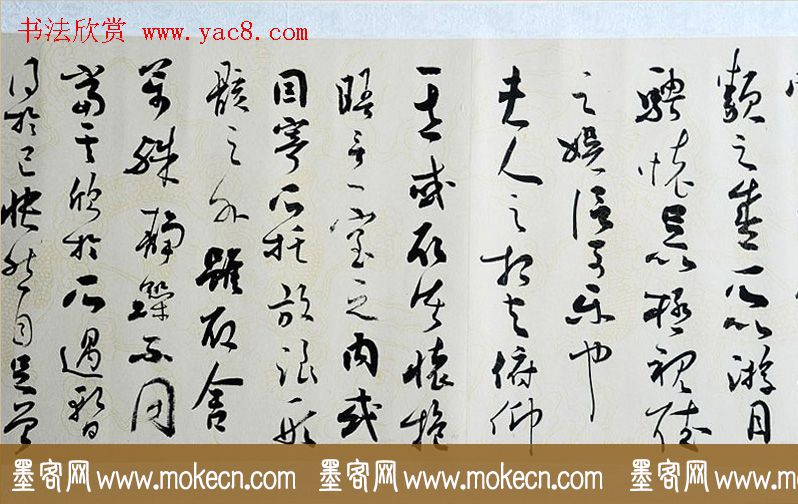 书法欣赏 www.yac8.com
類之盛所以游目
騁懷足以極視聽
之娛信可樂也
夫人之相与俯仰
一世或取諸懷抱
晤言一室之內或
因寄所托放浪形
骸之外雖取舍
萬殊靜躁不同
當其欣於所遇暫
得於己快然自足曾
墨客网 www.mokecn.com 墨客网 www.mokecn.com 墨客网 www.mokecn.com